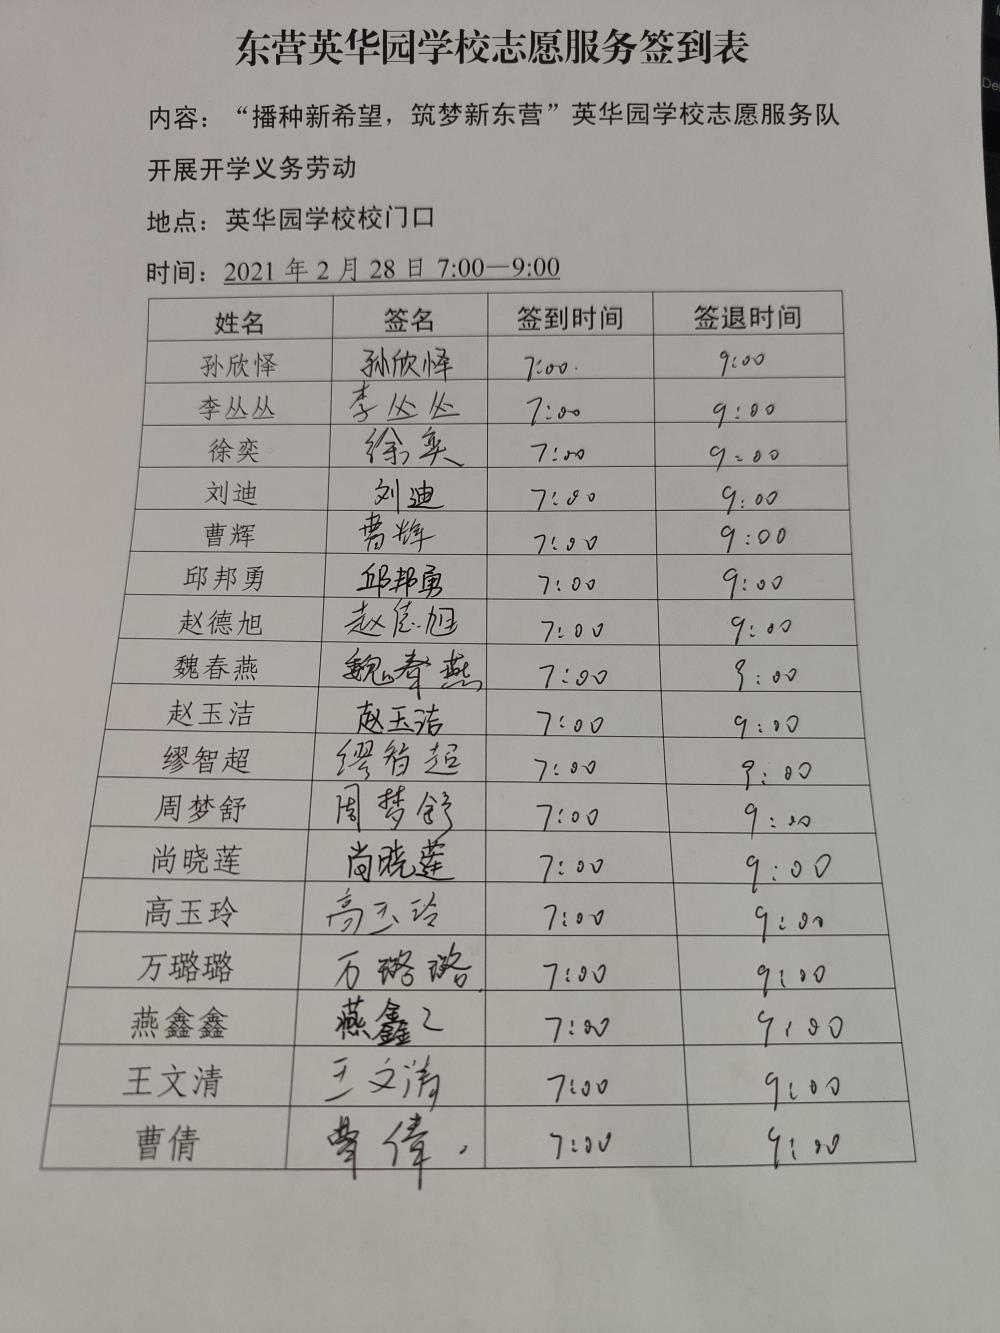 东营英华园学校志愿服务签到表
内容：“播种新希望，筑梦新东营”英华园学校志愿服务队
开展开学义务劳动
地点：英华园学校校门口
时间：2021 年 2 月 28 日 7:00—9:00
姓名 签名 签到时间 签退时间
孙欣怿 孙欣怿 7:00. 9:00
李丛丛 李丛丛 7:00 9:00
徐奕 徐奕 7:00 9:00
刘迪 刘迪 7:00 9:00
曹辉 曹辉 7:00 9:00
邱邦勇 邱邦勇 7:00 9:00
赵德旭 赵德旭 7:00 9:00
魏春燕 魏春燕 7:00 9:00
赵玉洁 赵玉洁 7:00 9:00
缪智超 缪智超 7:00 9:00
周梦舒 周梦舒 7:00 9:00
尚晓莲 尚晓莲 7:00 9:00
高玉玲 高玉玲 7:00 9:00
万璐璐 万璐璐 7:00 9:00
燕鑫鑫 燕鑫2 7:00 9:00
王文清 王文清 7:00 9:00
曹倩 曹倩. 7:00 9:00